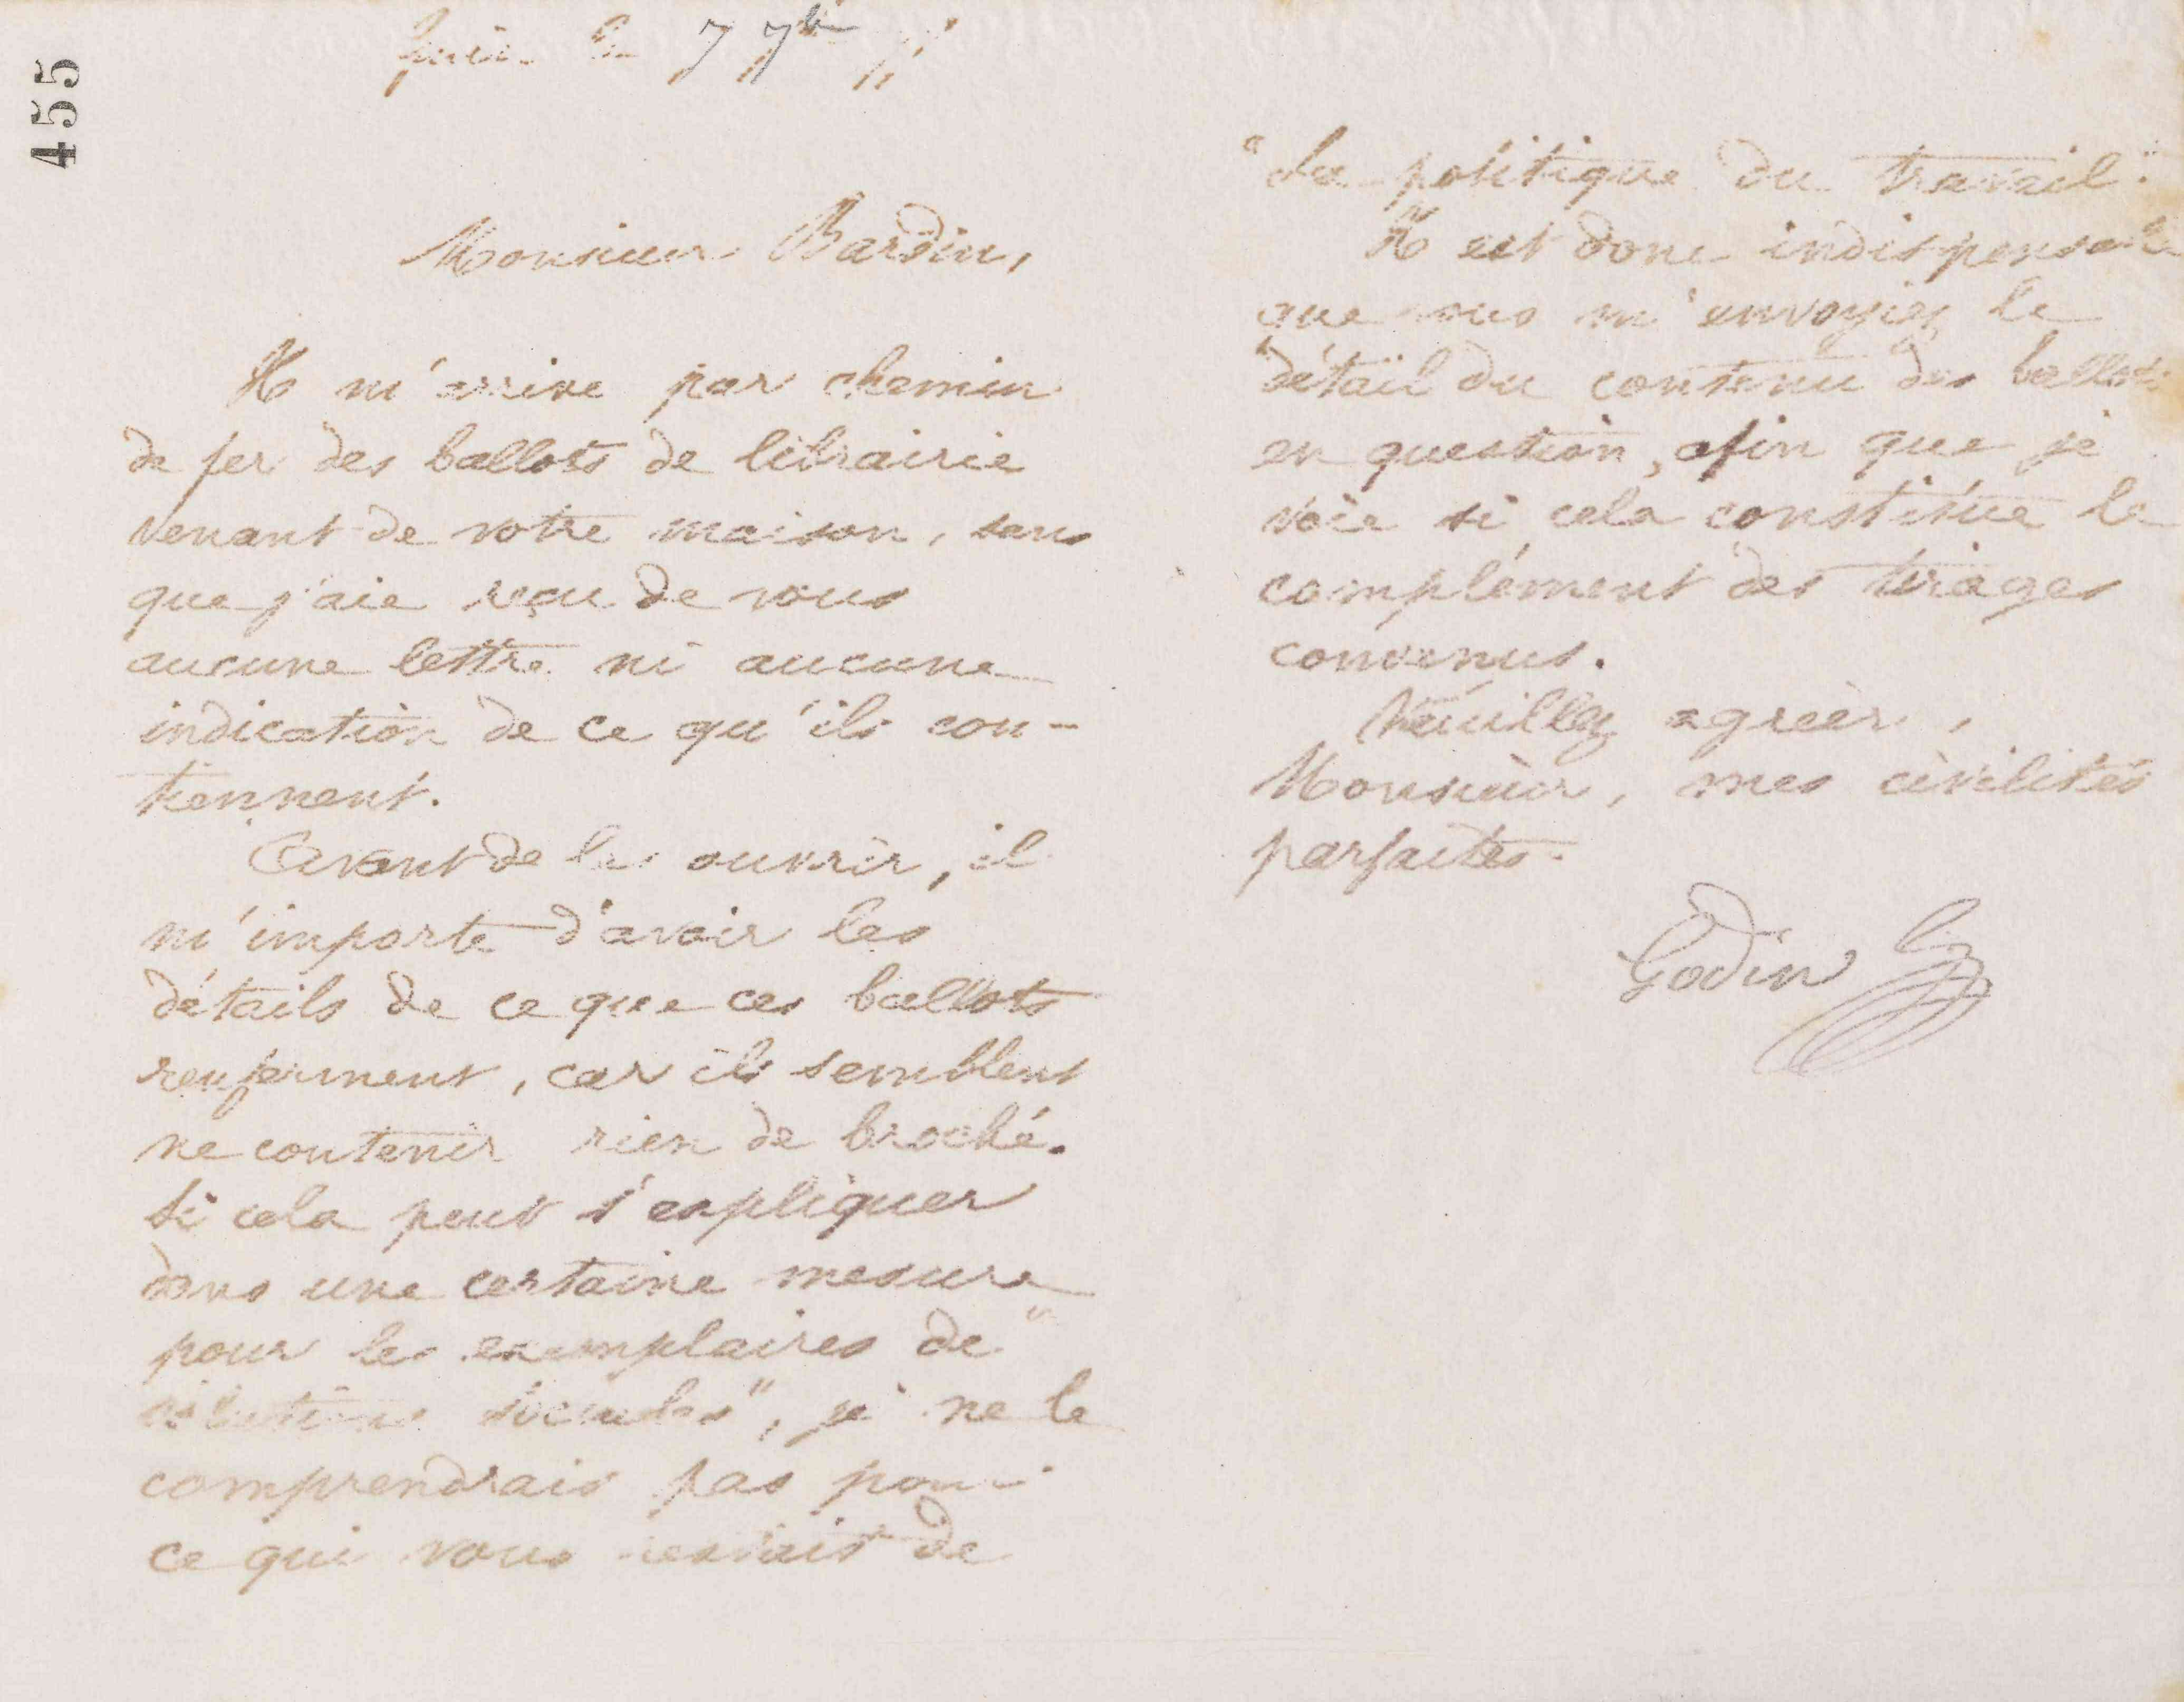 455
le 7 7bre
Monsieur Bardin,
Il m'arrive par chemin
de fer des ballots de librairie
venant de votre maison, sans
que j'aie reçu de vous
aucune lettre ni aucune
indication de ce qu'ils con-
tiennent.
Avant de les ouvrir, il
m'importe d'avoir les
détails de ce que ces ballots
renferment, car ils semblent
ne contenir rien de broché.
Si cela peut s'expliquer
dans une certaine mesure
pour les exemplaires de "
solutions sociales", je ne le
comprendrais pas pour
ce qui vous restait de
"La politique du travail".
Il est donc indispensable
que vous m'envoyiez le
détail du contenu des ballots
en question, afin que je
voie si cela constitue le
complément des tirages
convenus.
Veuillez agréer,
Monsieur, mes civilités
parfaites.
Godin